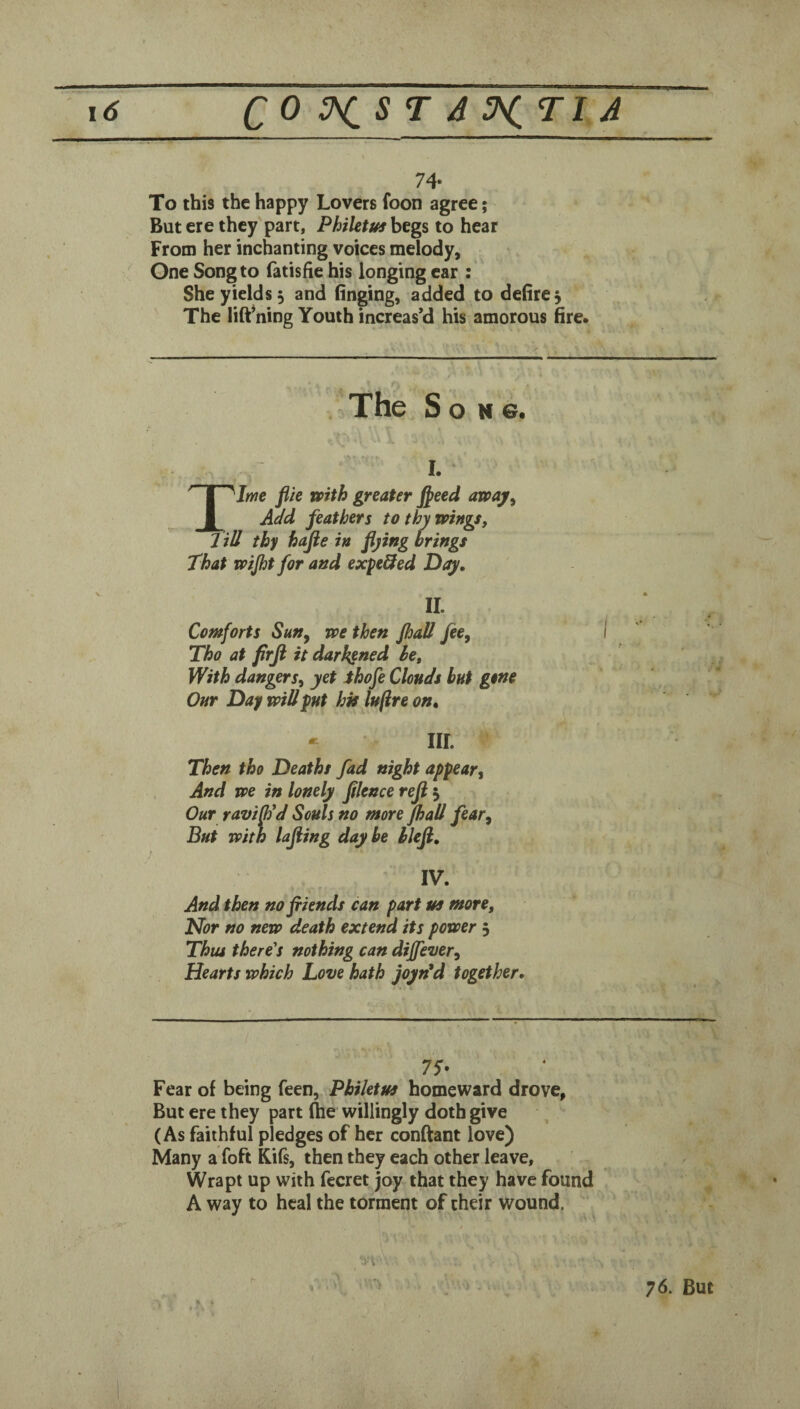 16 CONSTANTIA
74.
To this the happy Lovers ſoon agree;
But ere they part, Philetus begs to hear
From her inchanting voices melody,
One Song to ſatisfie his longing ear :
She yields; and ſinging, added to deſire;
The liſt'ning Youth increas'd his amorous fire.
The SONG.
I.
TIme flie with greater ſpeed away,
Add feathers to thy wings,
Till thy haſte in flying brings
That wiſht for and expected Day.
II.
Comforts Sun, we then ſhall ſee,
Tho at firſt it darkened be,
With dangers, yet thoſe Clouds but gone
Our Day will put his luſtre on.
III.
Then tho Deaths ſad night appear,
And we in lonely ſilence reſt;
Our raviſh'd Souls no more ſhall fear,
But with laſting day be bleſt.
IV.
And then no friends can part us more,
Nor no new death extend its power;
Thus there's nothing can diſſever,
Hearts which Love hath joyn'd together.
75.
Fear of being ſeen, Philetus homeward drove,
But ere they part ſhe willingly doth give
(As faithful pledges of her conſtant love)
Many a ſoft Kiſs, then they each other leave,
Wrapt up with ſecret joy that they have found
A way to heal the torment of their wound.
76. But